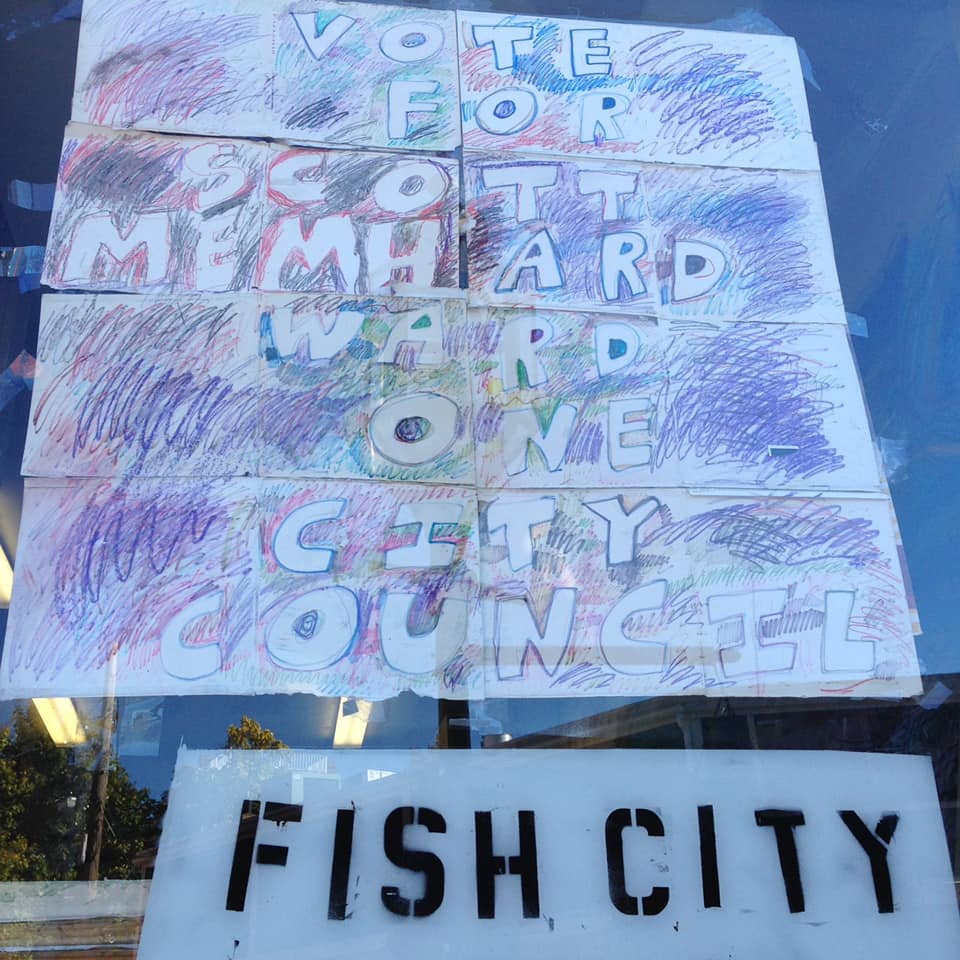 VOTE
FOR
SCOTT
MEMHARD
WARD
ONE
CITY
COUNCIL
FISH CITY